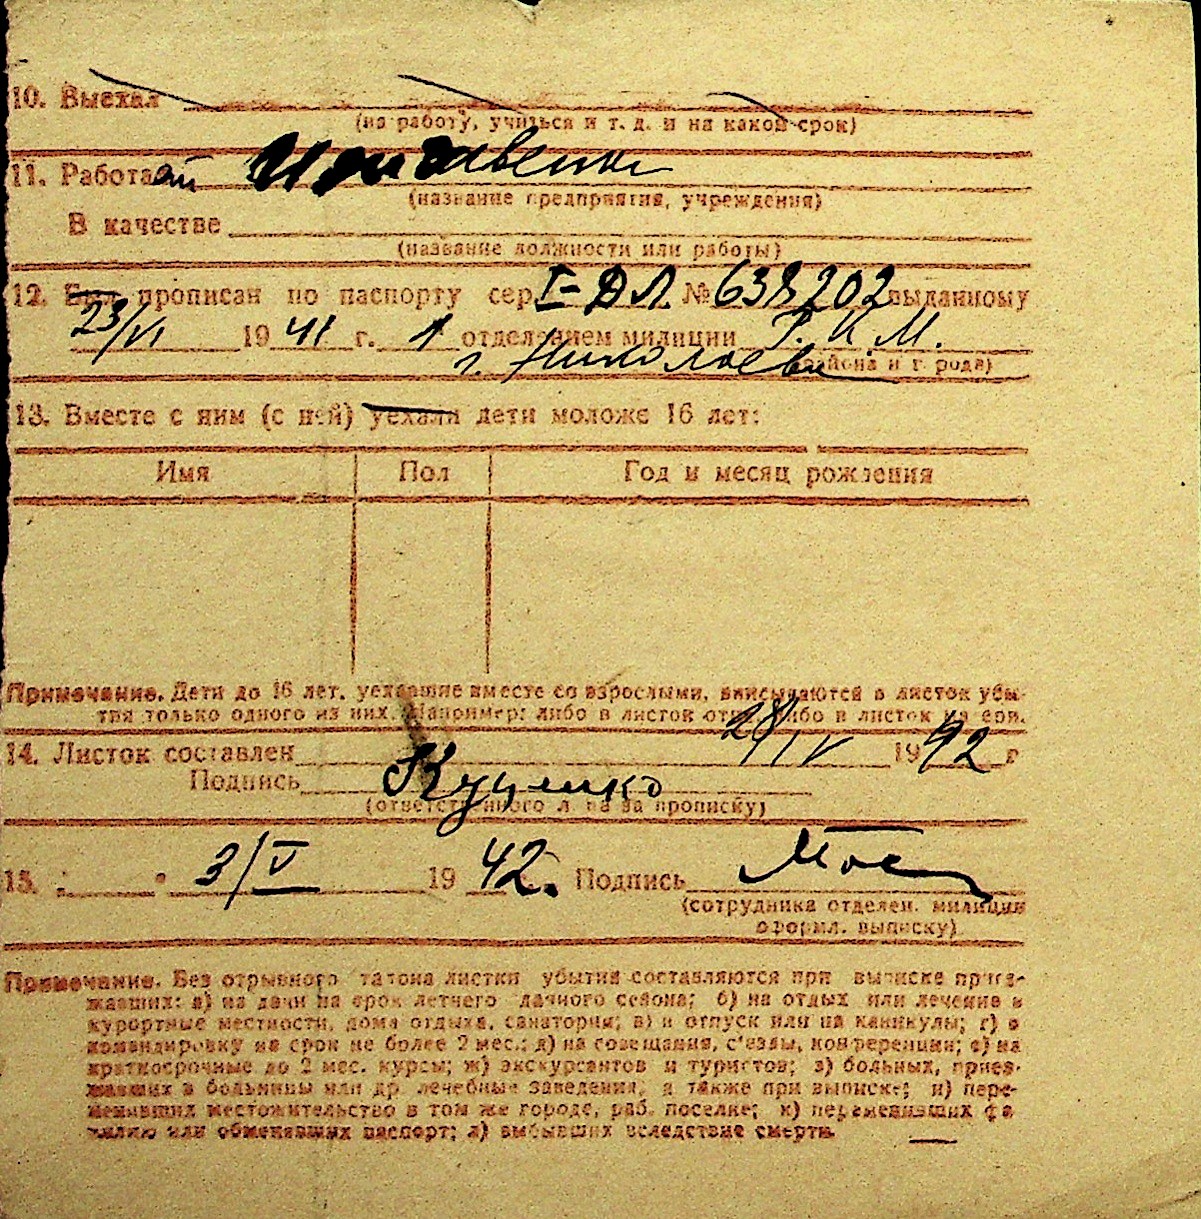 10. Выехал
(на работу, учиться и т. д. и на какой срок)
11. Работает Иждивенец
(название предприятия, учреждения)
В качестве
(название должности или работы)
12. Был прописан по паспорту сер. I-ДЛ № 638202 выданному
23/VI 1941 г. 1 отделением милиции Р.К.М.
г. Николаева (района и города)
13. Вместе с ним (с ней) уехали дети моложе 16 лет:
Имя Пол Год и месяц рождения
Примечание. Дети до 16 лет, уехавшие вместе со взрослыми, вписываются в листок убы-
тия только одного из них. Например: либо в листок отца, либо в листок матери.
14. Листок составлен 28/IV 1942 г
Подпись Куценко
(ответственного лица за прописку)
15. 3/V 1942. Подпись
(сотрудника отделен. милиции
оформл. выписку)
Примечание. Без отрывного талона листки убытия составляются при выписке приез-
жавших: а) на дачи на срок летнего дачного сезона; б) на отдых или лечение в
курортные местности, дома отдыха, санатории; в) в отпуск или на каникулы; г) в
командировку на срок не более 2 мес.; д) на совещания, с'езды, конференции; е) на
краткосрочные до 2 мес. курсы; ж) экскурсантов и туристов; з) больных, приез-
жавших в больницы или др. лечебные заведения, а также при выписке; и) пере-
менивших местожительство в том же городе, раб. поселке; к) переменивших фа-
милию или обменявших паспорт; л) выбывших вследствие смерти.